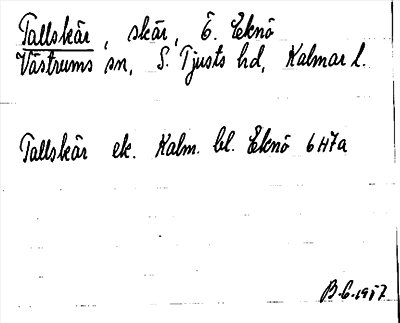 Tallskär, skär, Ö. Eknö
Västrums sn, S. Tjusts hd, Kalmar l.
Tallskär ek. Kalm. bl. Eknö 6H7a
B.G. 1957